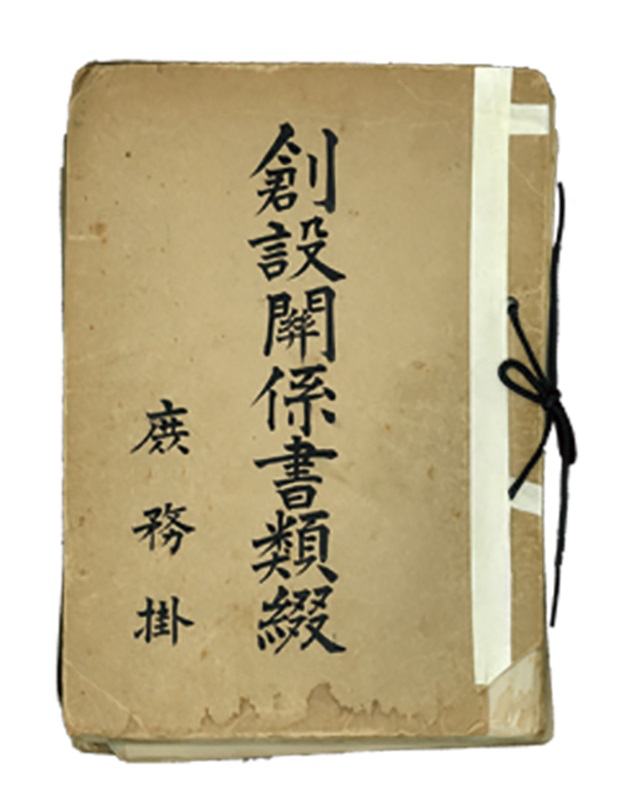 創設関係書類綴
庶務掛